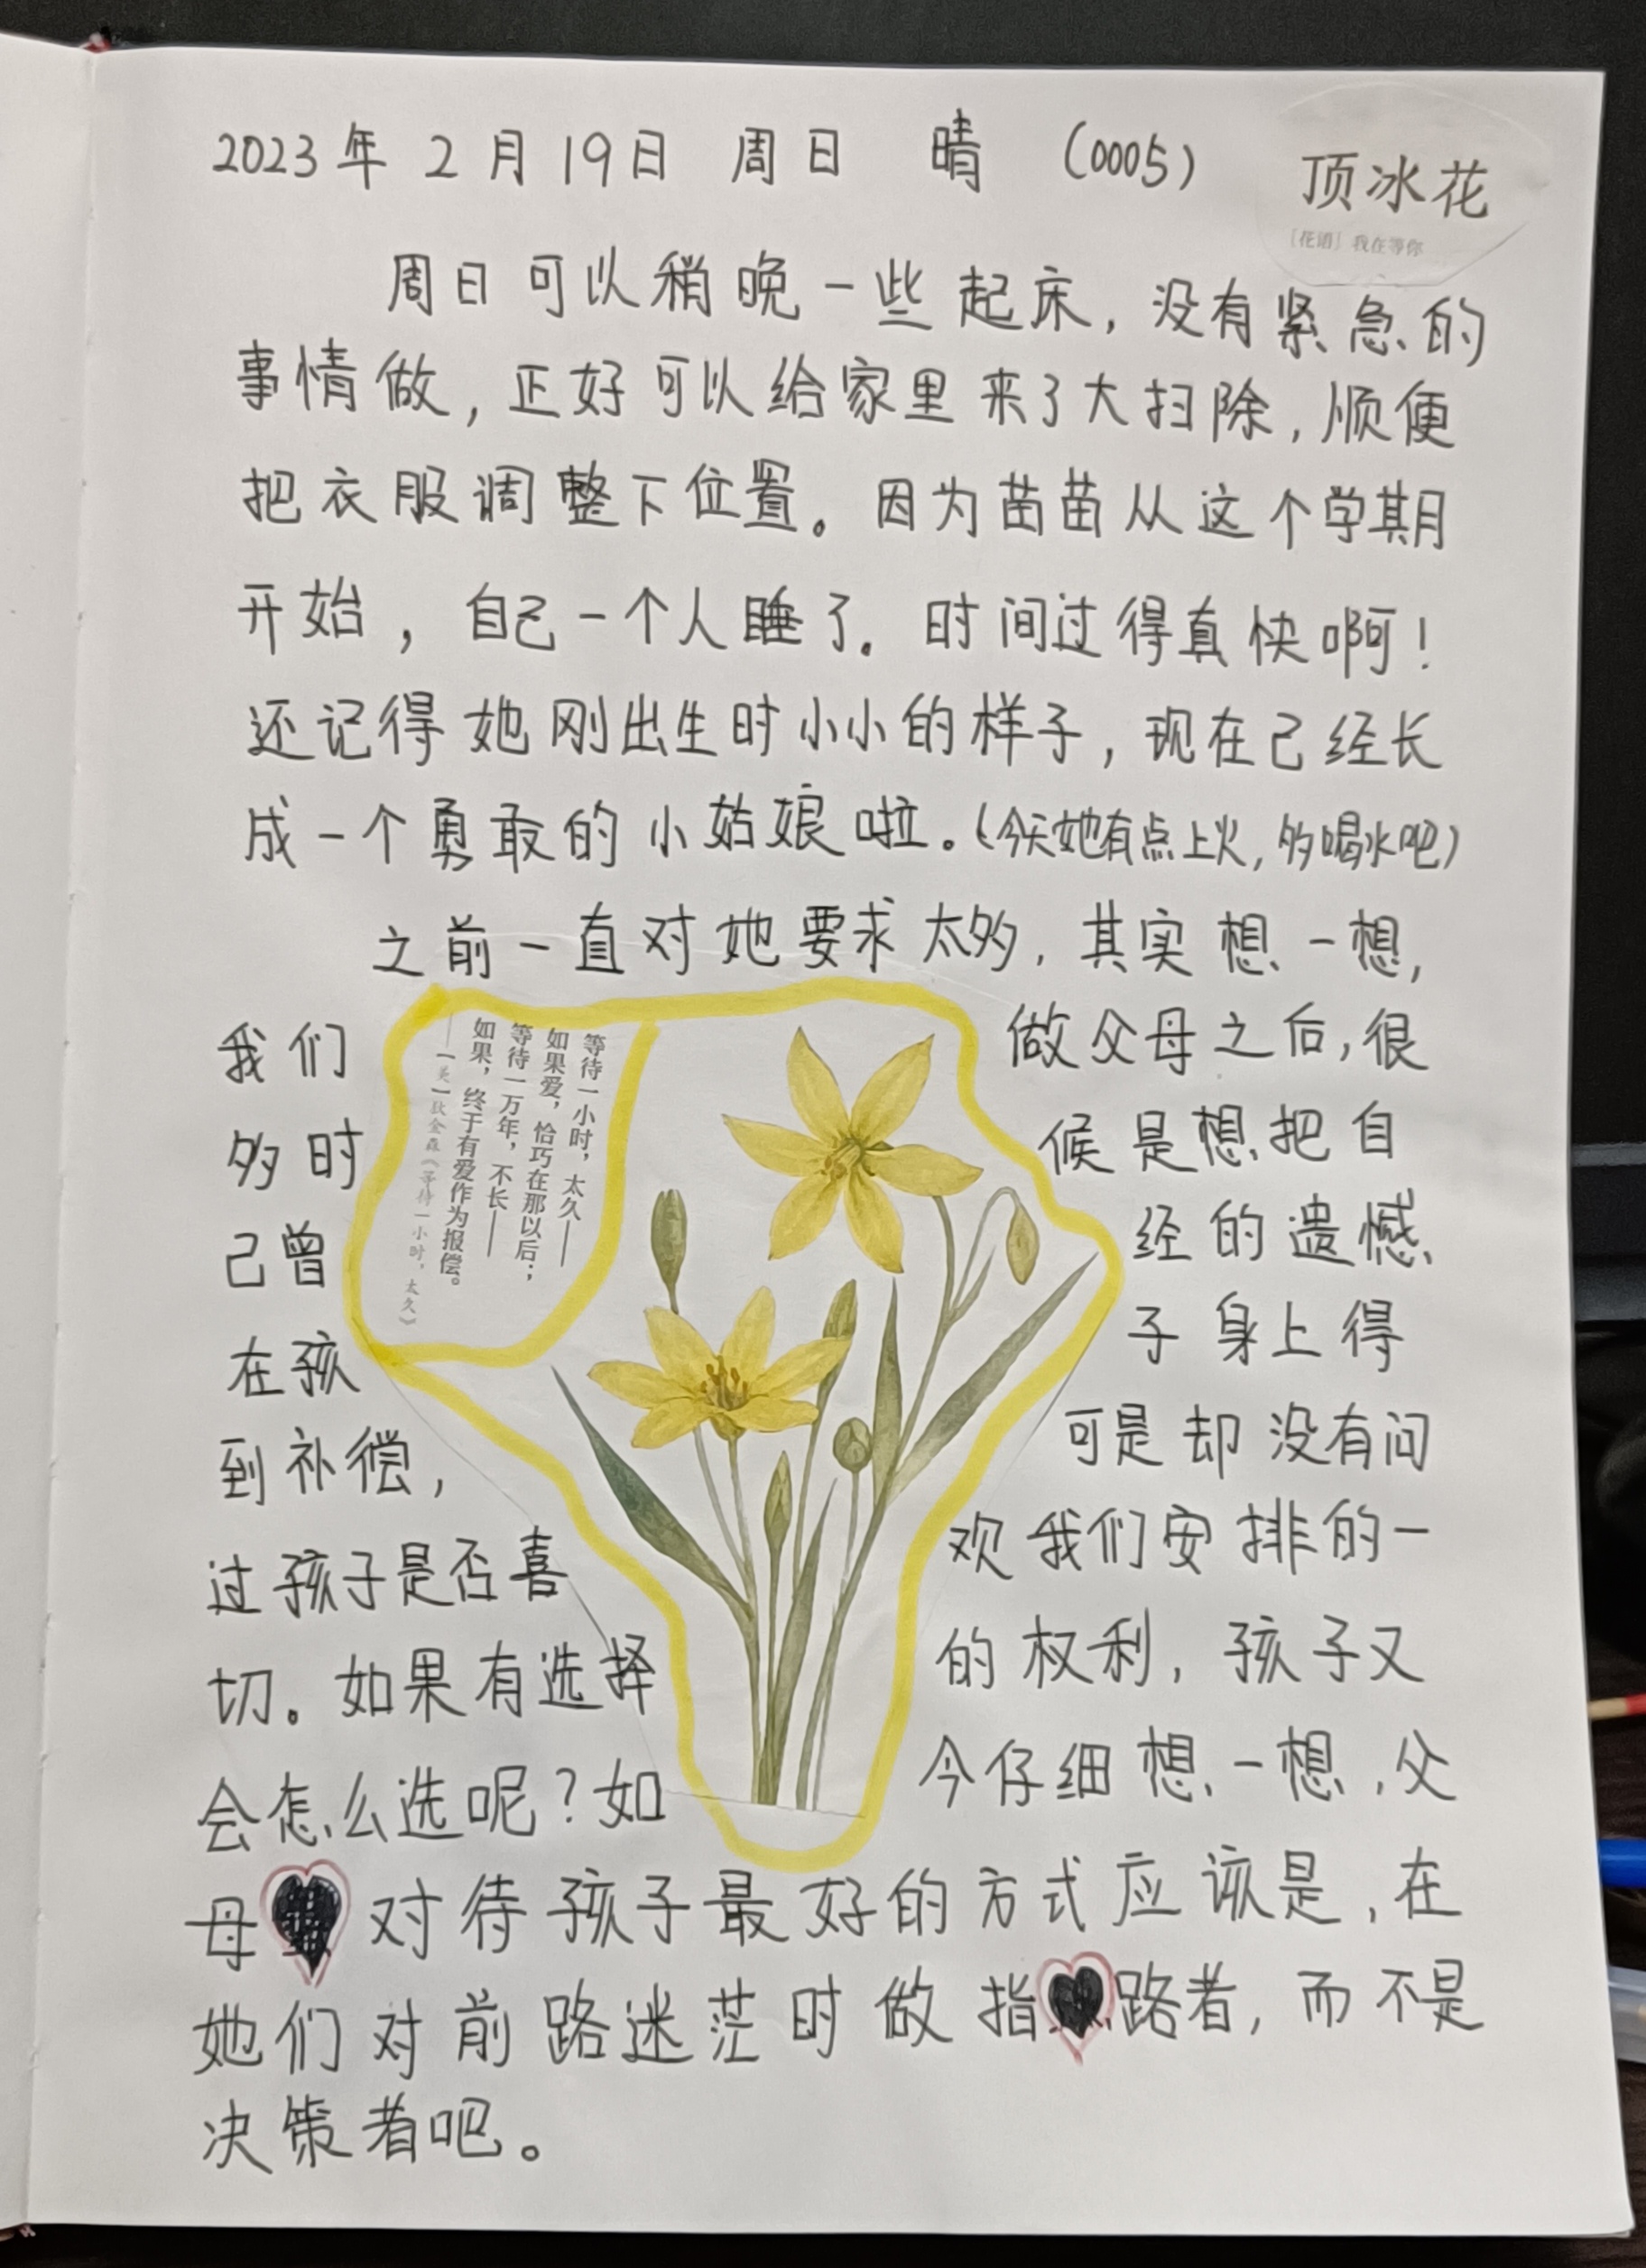 2023年 2月19日 周日 晴 (0005)
顶冰花
[花语] 我在等你
周日可以稍晚一些起床，没有紧急的
事情做，正好可以给家里来了大扫除，顺便
把衣服调整下位置。因为苗苗从这个学期
开始，自己一个人睡了。时间过得真快啊！
还记得她刚出生时小小的样子，现在己经长
成一个勇敢的小姑娘啦。(今天她有点上火，多喝水吧)
之前一直对她要求太多，其实想一想，
我们 做父母之后，很
多时 候是想把自
己曾 经的遗憾
在孩 子身上得
到补偿， 可是却没有问
过孩子是否喜 欢我们安排的一
切。如果有选择 的权利，孩子又
会怎么选呢？如 今仔细想一想，父
母 对待孩子最好的方式应该是，在
她们对前路迷茫时做指 路者，而不是
决策者吧。
等待一小时，太久——
如果爱，恰巧在那以后；
等待一万年，不长——
如果，终于有爱作为报偿。
——［美］狄金森《等待一小时，太久》